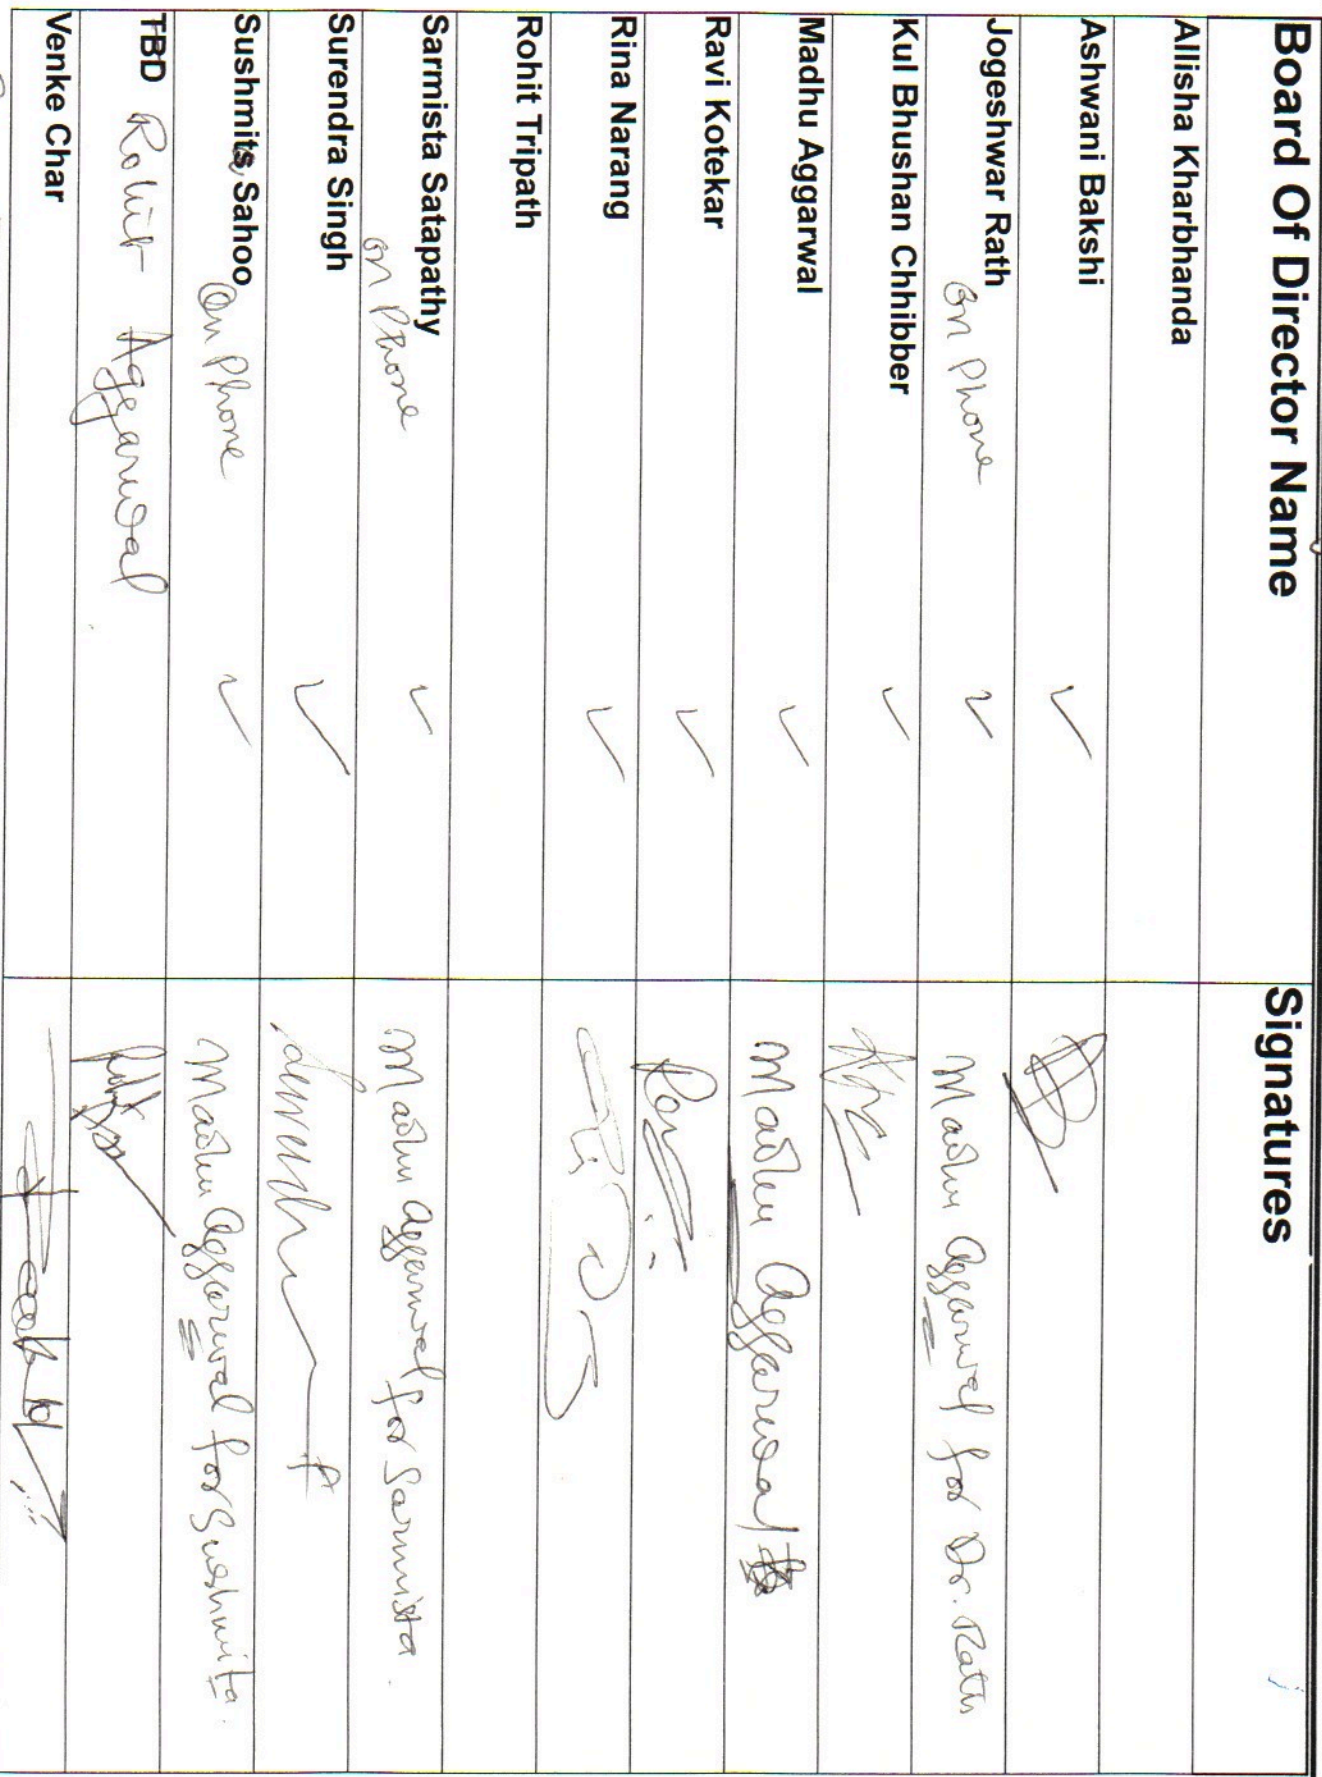 Board Of Director Name Signatures
Allisha Kharbhanda
Ashwani Bakshi ✓
Jogeshwar Rath on Phone ✓ Madhu Aggarwal for Dr. Rath
Kul Bhushan Chhibber ✓
Madhu Aggarwal ✓ Madhu Aggarwal
Ravi Kotekar ✓ Ravi
Rina Narang ✓
Rohit Tripath
Sarmista Satapathy on Phone ✓ Madhu Aggarwal for Sarmista
Surendra Singh ✓
Sushmita Sahoo on Phone ✓ Madhu Aggarwal for Sushmita.
TBD Rohit Aggarwal
Venke Char